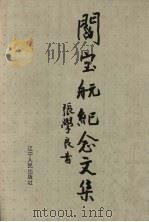 閻宝航紀念文集
張學良書
辽宁人民出版社
www.duxiu.com